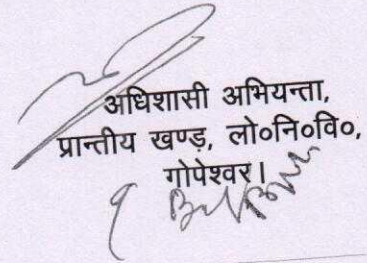 अधिशासी अभियन्ता,
प्रान्तीय खण्ड़, लो०नि०वि०,
गोपेश्वर।